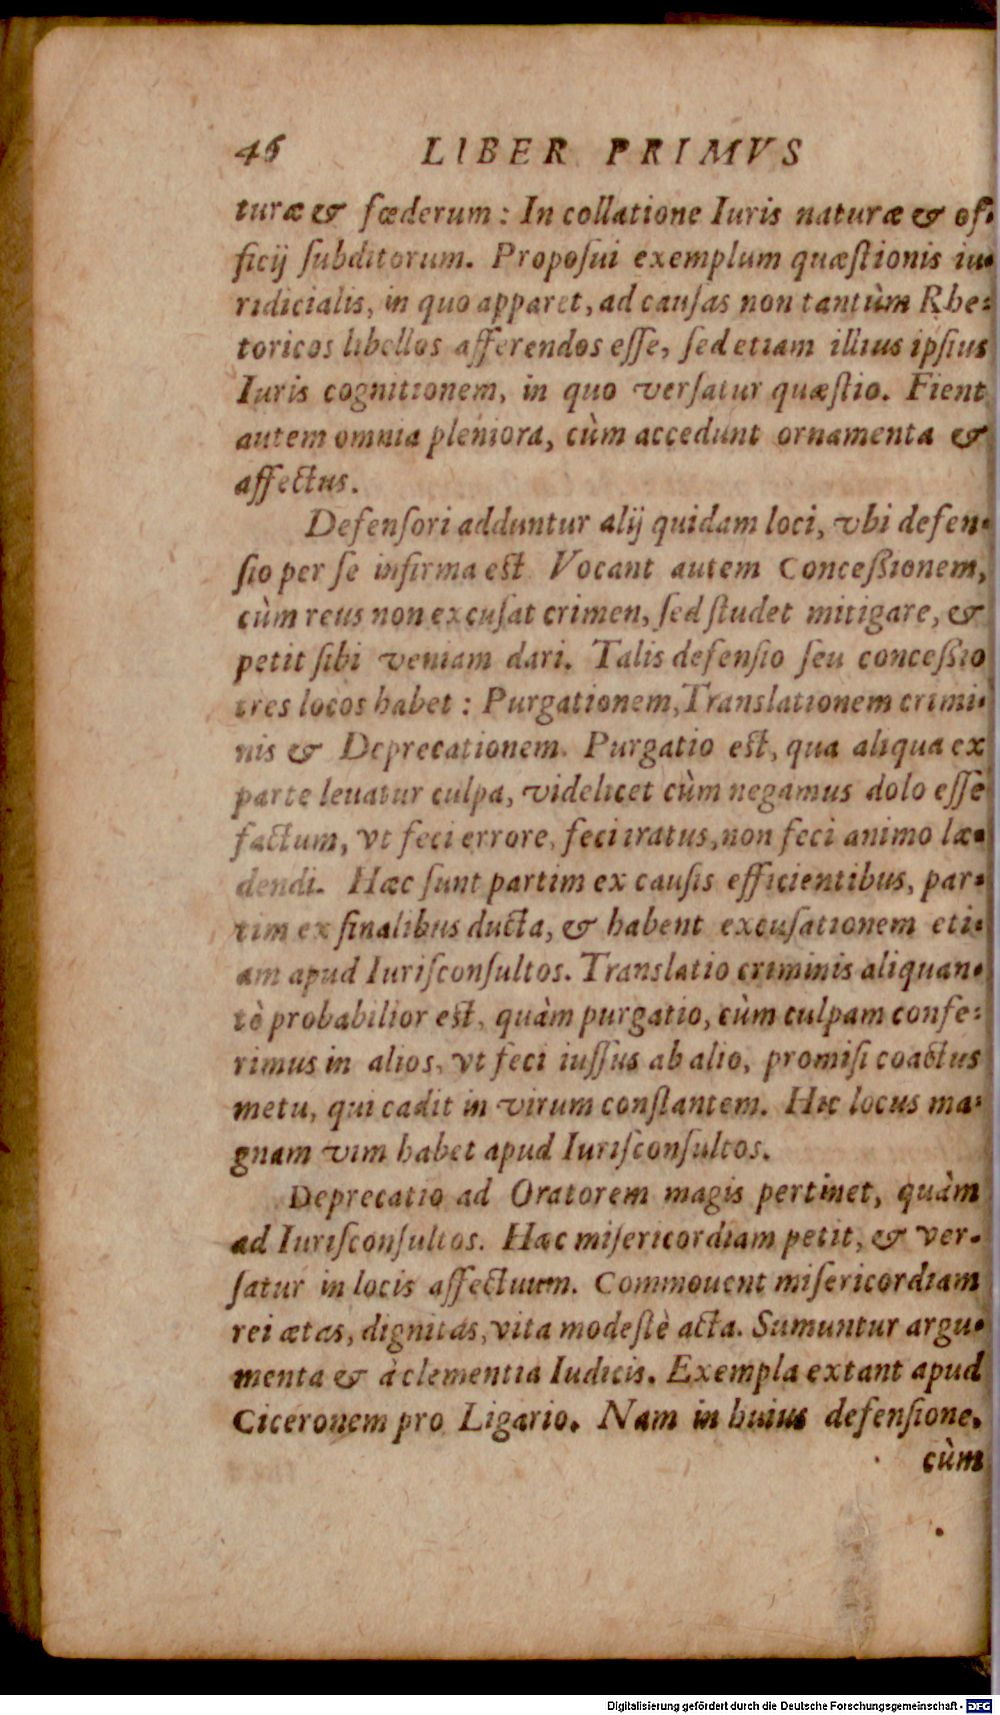 46 LIBER PRIMVS
turæ & fœderum : In collatione Iuris naturæ & of-
ficij ſubditorum. Propoſui exemplum quæſtionis iu-
ridicialis, in quo apparet, ad cauſas non tantùm Rhe-
toricos libellos afferendos eſſe, ſed etiam illius ipſius
Iuris cognitionem, in quo verſatur quæſtio. Fient
autem omnia pleniora, cùm accedunt ornamenta &
affectus.
Defenſori adduntur alij quidam loci, vbi defen-
ſio per ſe infirma est Vocant autem Conceßionem,
cùm reus non excuſat crimen, ſed ſtudet mitigare, &
petit ſibi veniam dari. Talis defenſio ſeu conceßio
tres locos habet : Purgationem, Translationem crimi-
nis & Deprecationem. Purgatio est, qua aliqua ex
parte leuatur culpa, videlicet cùm negamus dolo eſſe
factum, vt feci errore, feci iratus, non feci animo læ-
dendi. Hæc ſunt partim ex cauſis efficientibus, par-
tim ex finalibus ducta, & habent excuſationem eti-
am apud Iuriſconſultos. Translatio criminis aliquan-
tè probabilior est, quàm purgatio, cùm culpam confe-
rimus in alios, vt feci iuſſus ab alio, promiſi coactus
metu, qui cadit in virum conſtantem. Hic locus ma-
gnam vim habet apud Iuriſconſultos.
Deprecatio ad Oratorem magis pertinet, quàm
ad Iuriſconſultos. Hæc miſericordiam petit, & ver-
ſatur in locis affectuum. Commouent miſericordiam
rei ætas, dignitas, vita modeſtè acta. Sumuntur argu-
menta & à clementia Iudicis. Exempla extant apud
Ciceronem pro Ligario. Nam in huius defenſione,
cùm
Digitalisierung gefördert durch die Deutsche Forschungsgemeinschaft - DFG